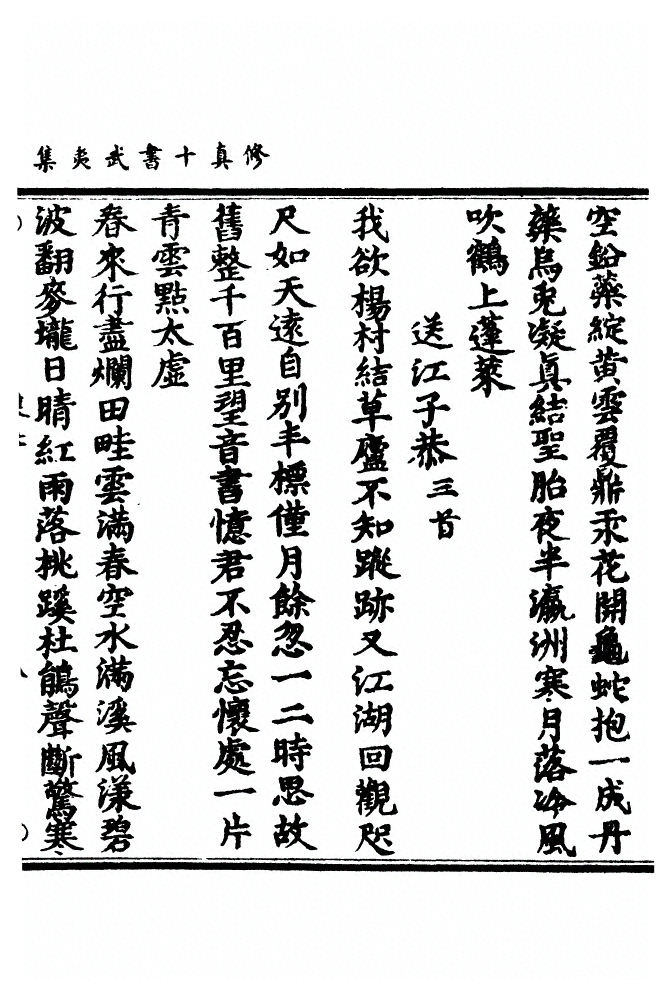 修真十書武夷集
空鉛藥綻黃雲覆鼎汞花開龜蛇抱一成丹
藥烏兎凝真結聖胎夜半瀛洲寒月落冷風
吹鶴上蓬萊
送江子恭三首
我欲楊村結草廬不知蹤跡又江湖回觀咫
尺如天遠自別丰標僅月餘忽一二時思故
舊整千百里望音書憶君不忍忘懷處一片
青雲點太虛
春來行盡爛田畦雲滿春空水滿溪風漾碧
波翻麥壠日晴紅雨落桃蹊杜鵑聲斷驚寒